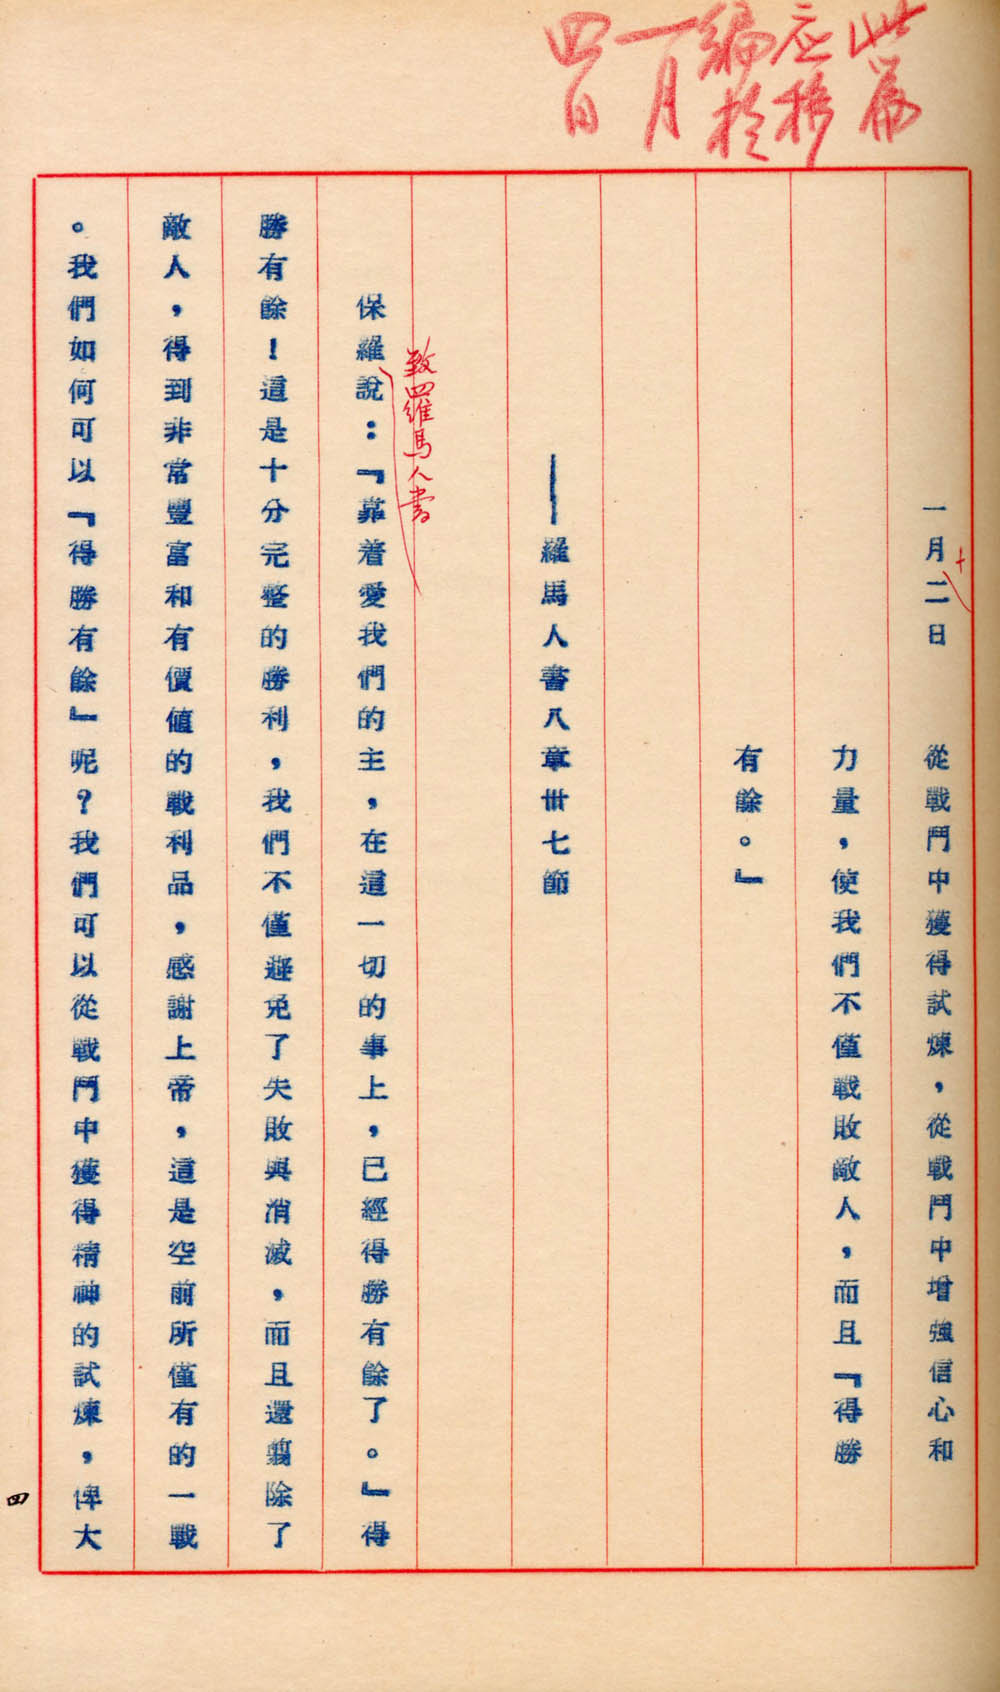 此篇
应移
編於
一月
四日
一月二日　從戰鬥中獲得試煉，從戰鬥中增強信心和
十
力量，使我們不僅戰敗敵人，而且『得勝
有餘。』
——羅馬人書八章卅七節
致羅馬人書
保羅說：『靠着愛我們的主，在這一切的事上，已經得勝有餘了。』得
勝有餘！這是十分完整的勝利，我們不僅避免了失敗與消滅，而且還翦除了
敵人，得到非常豐富和有價值的戰利品，感謝上帝，這是空前所僅有的一戰
。我們如何可以『得勝有餘』呢？我們可以從戰鬥中獲得精神的試煉，俾大
四